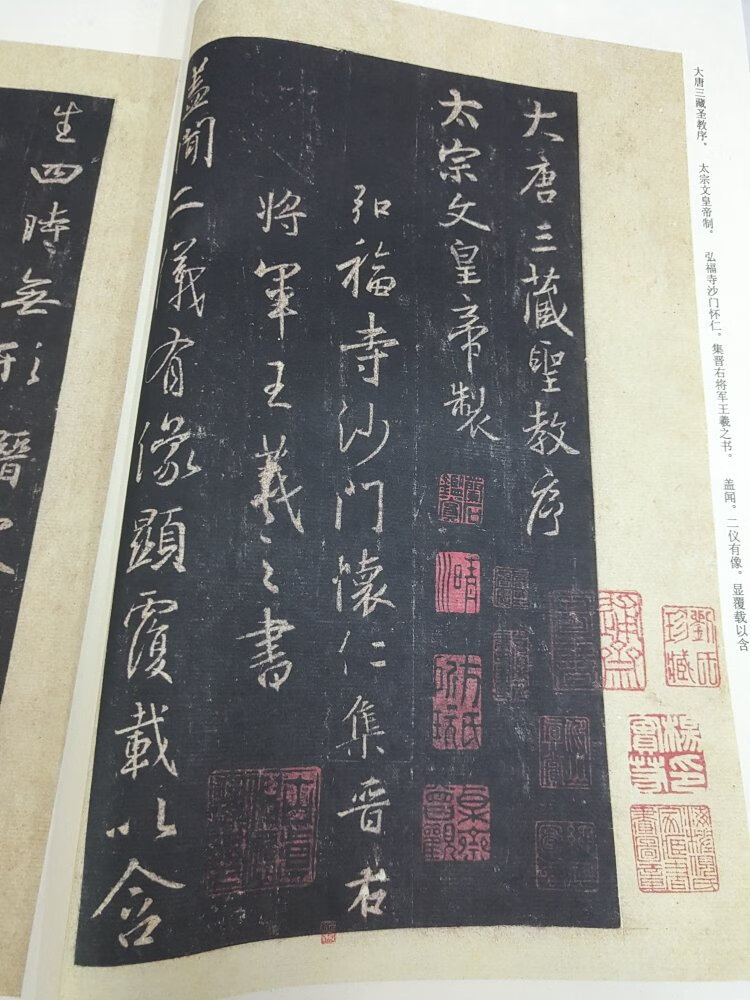 大唐三藏圣教序。 太宗文皇帝制。 弘福寺沙门怀仁。集晋右将军王羲之书。 盖闻。二仪有像。显覆载以含
大唐三藏聖教序
太宗文皇帝製
弘福寺沙門懷仁集晉右
將軍王羲之書
蓋聞二儀有像顯覆載以含
生四時無形潛寒
劉氏珍藏